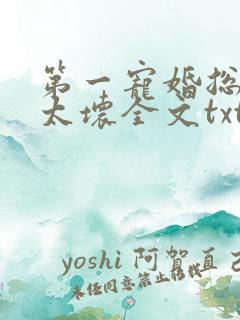 第一寵婚总
太壞全文txt
yoshi 阿贺直己
未经同意禁止转载